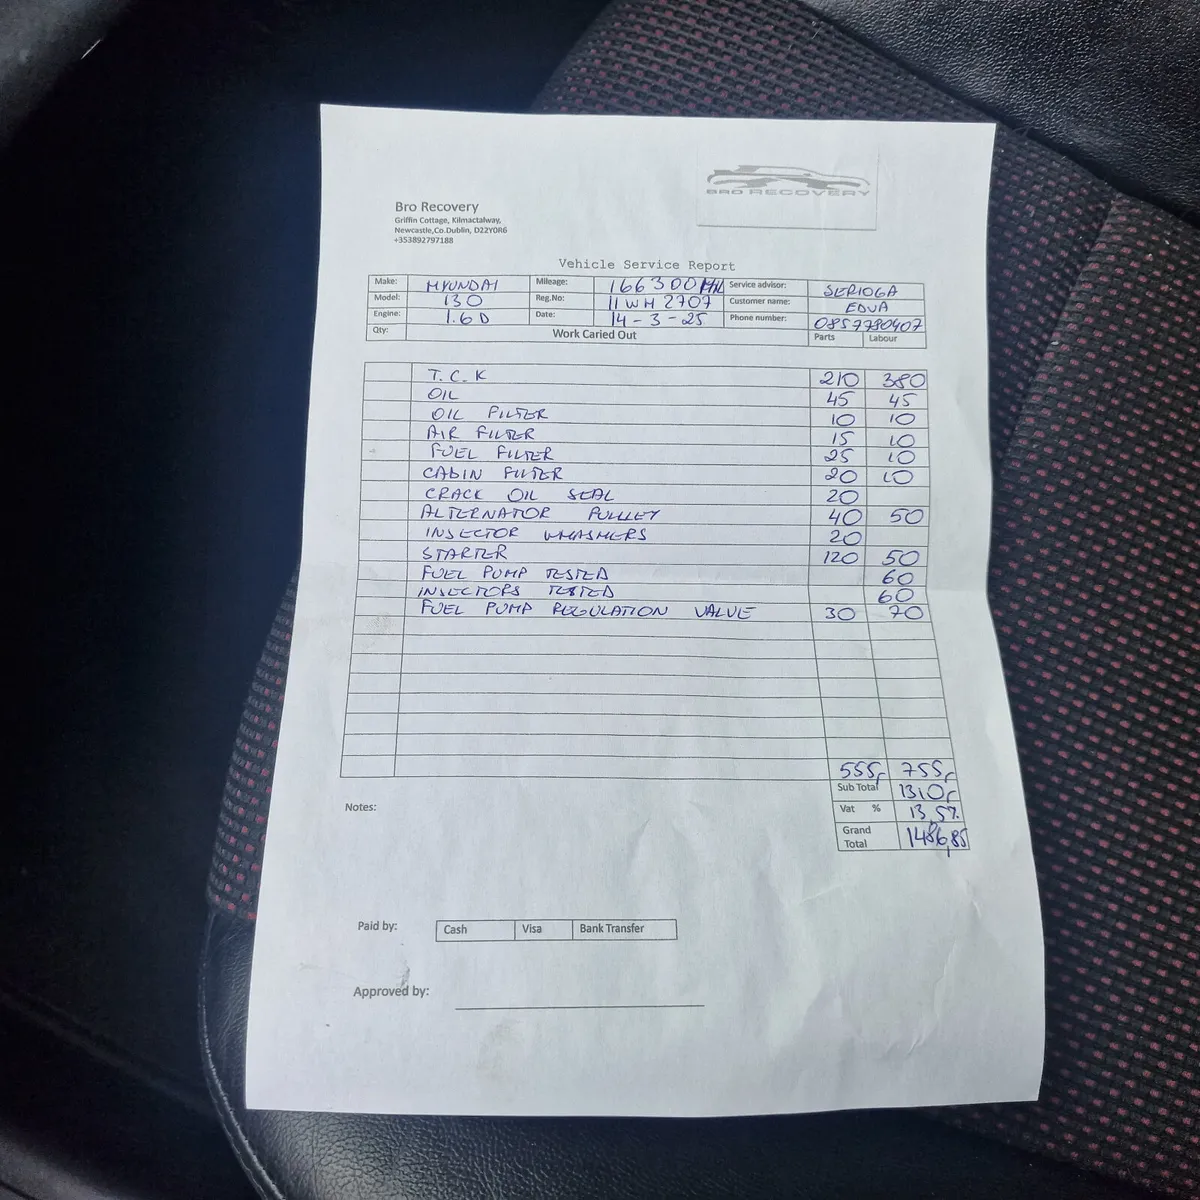 BRO RECOVERY
Bro Recovery
Griffin Cottage, Kilmactalway,
Newcastle,Co.Dublin, D22Y0R6
+353892797188
Vehicle Service Report
Make: HYUNDAI Mileage: 166300 Service advisor: SERIOGA
Model: I30 Reg.No: 11 WH 2707 Customer name: EDVA
Engine: 1.6 D Date: 14-3-25 Phone number: 0857780407
Qty: Work Caried Out Parts Labour
T.C.K 210 380
OIL 45 45
OIL FILTER 10 10
AIR FILTER 15 10
FUEL FILTER 25 10
CABIN FILTER 20 10
CRACK OIL SEAL 20
ALTERNATOR PULLEY 40 50
INSECTOR WHASHERS 20
STARTER 120 50
FUEL PUMP TESTED 60
INSECTORS TESTED 60
FUEL PUMP REGULATION VALVE 30 70
555,- 755,-
Sub Total 1310,-
Vat % 13,5%
Grand Total 1486,85
Notes:
Paid by: Cash Visa Bank Transfer
Approved by: